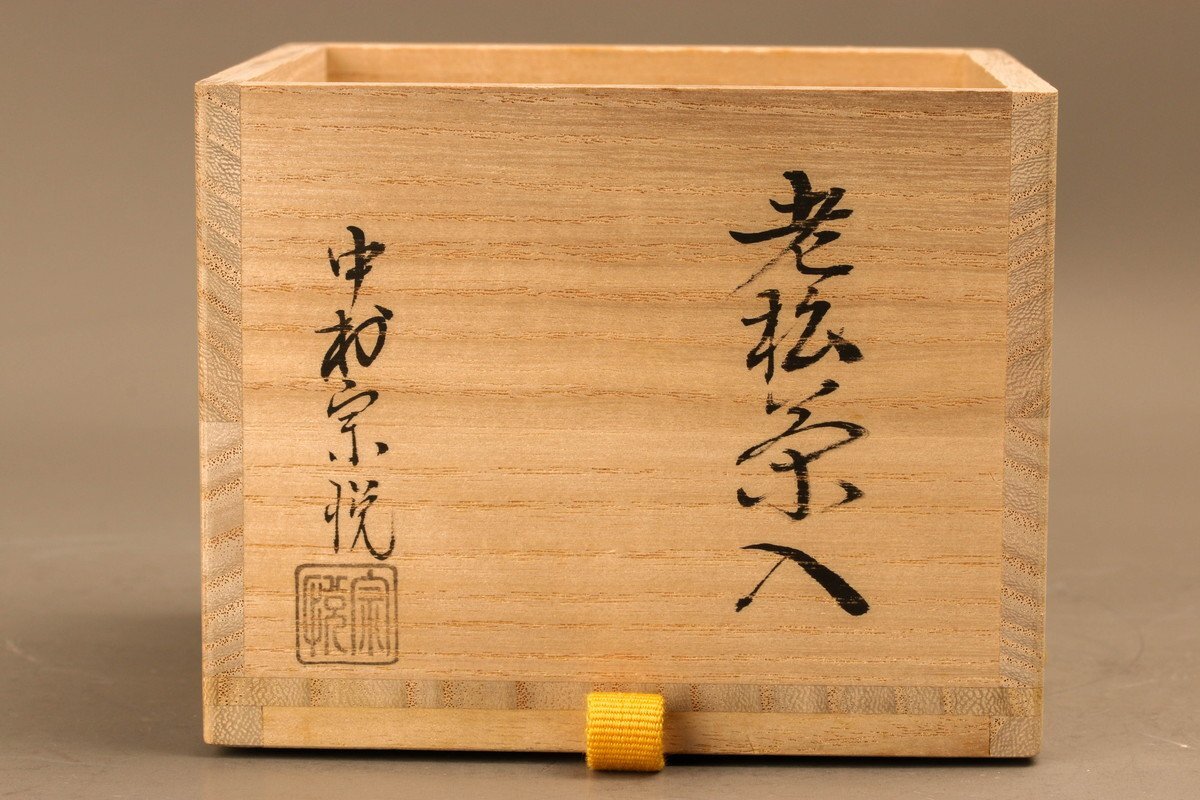 老松茶入
中村宗悦
宗悦